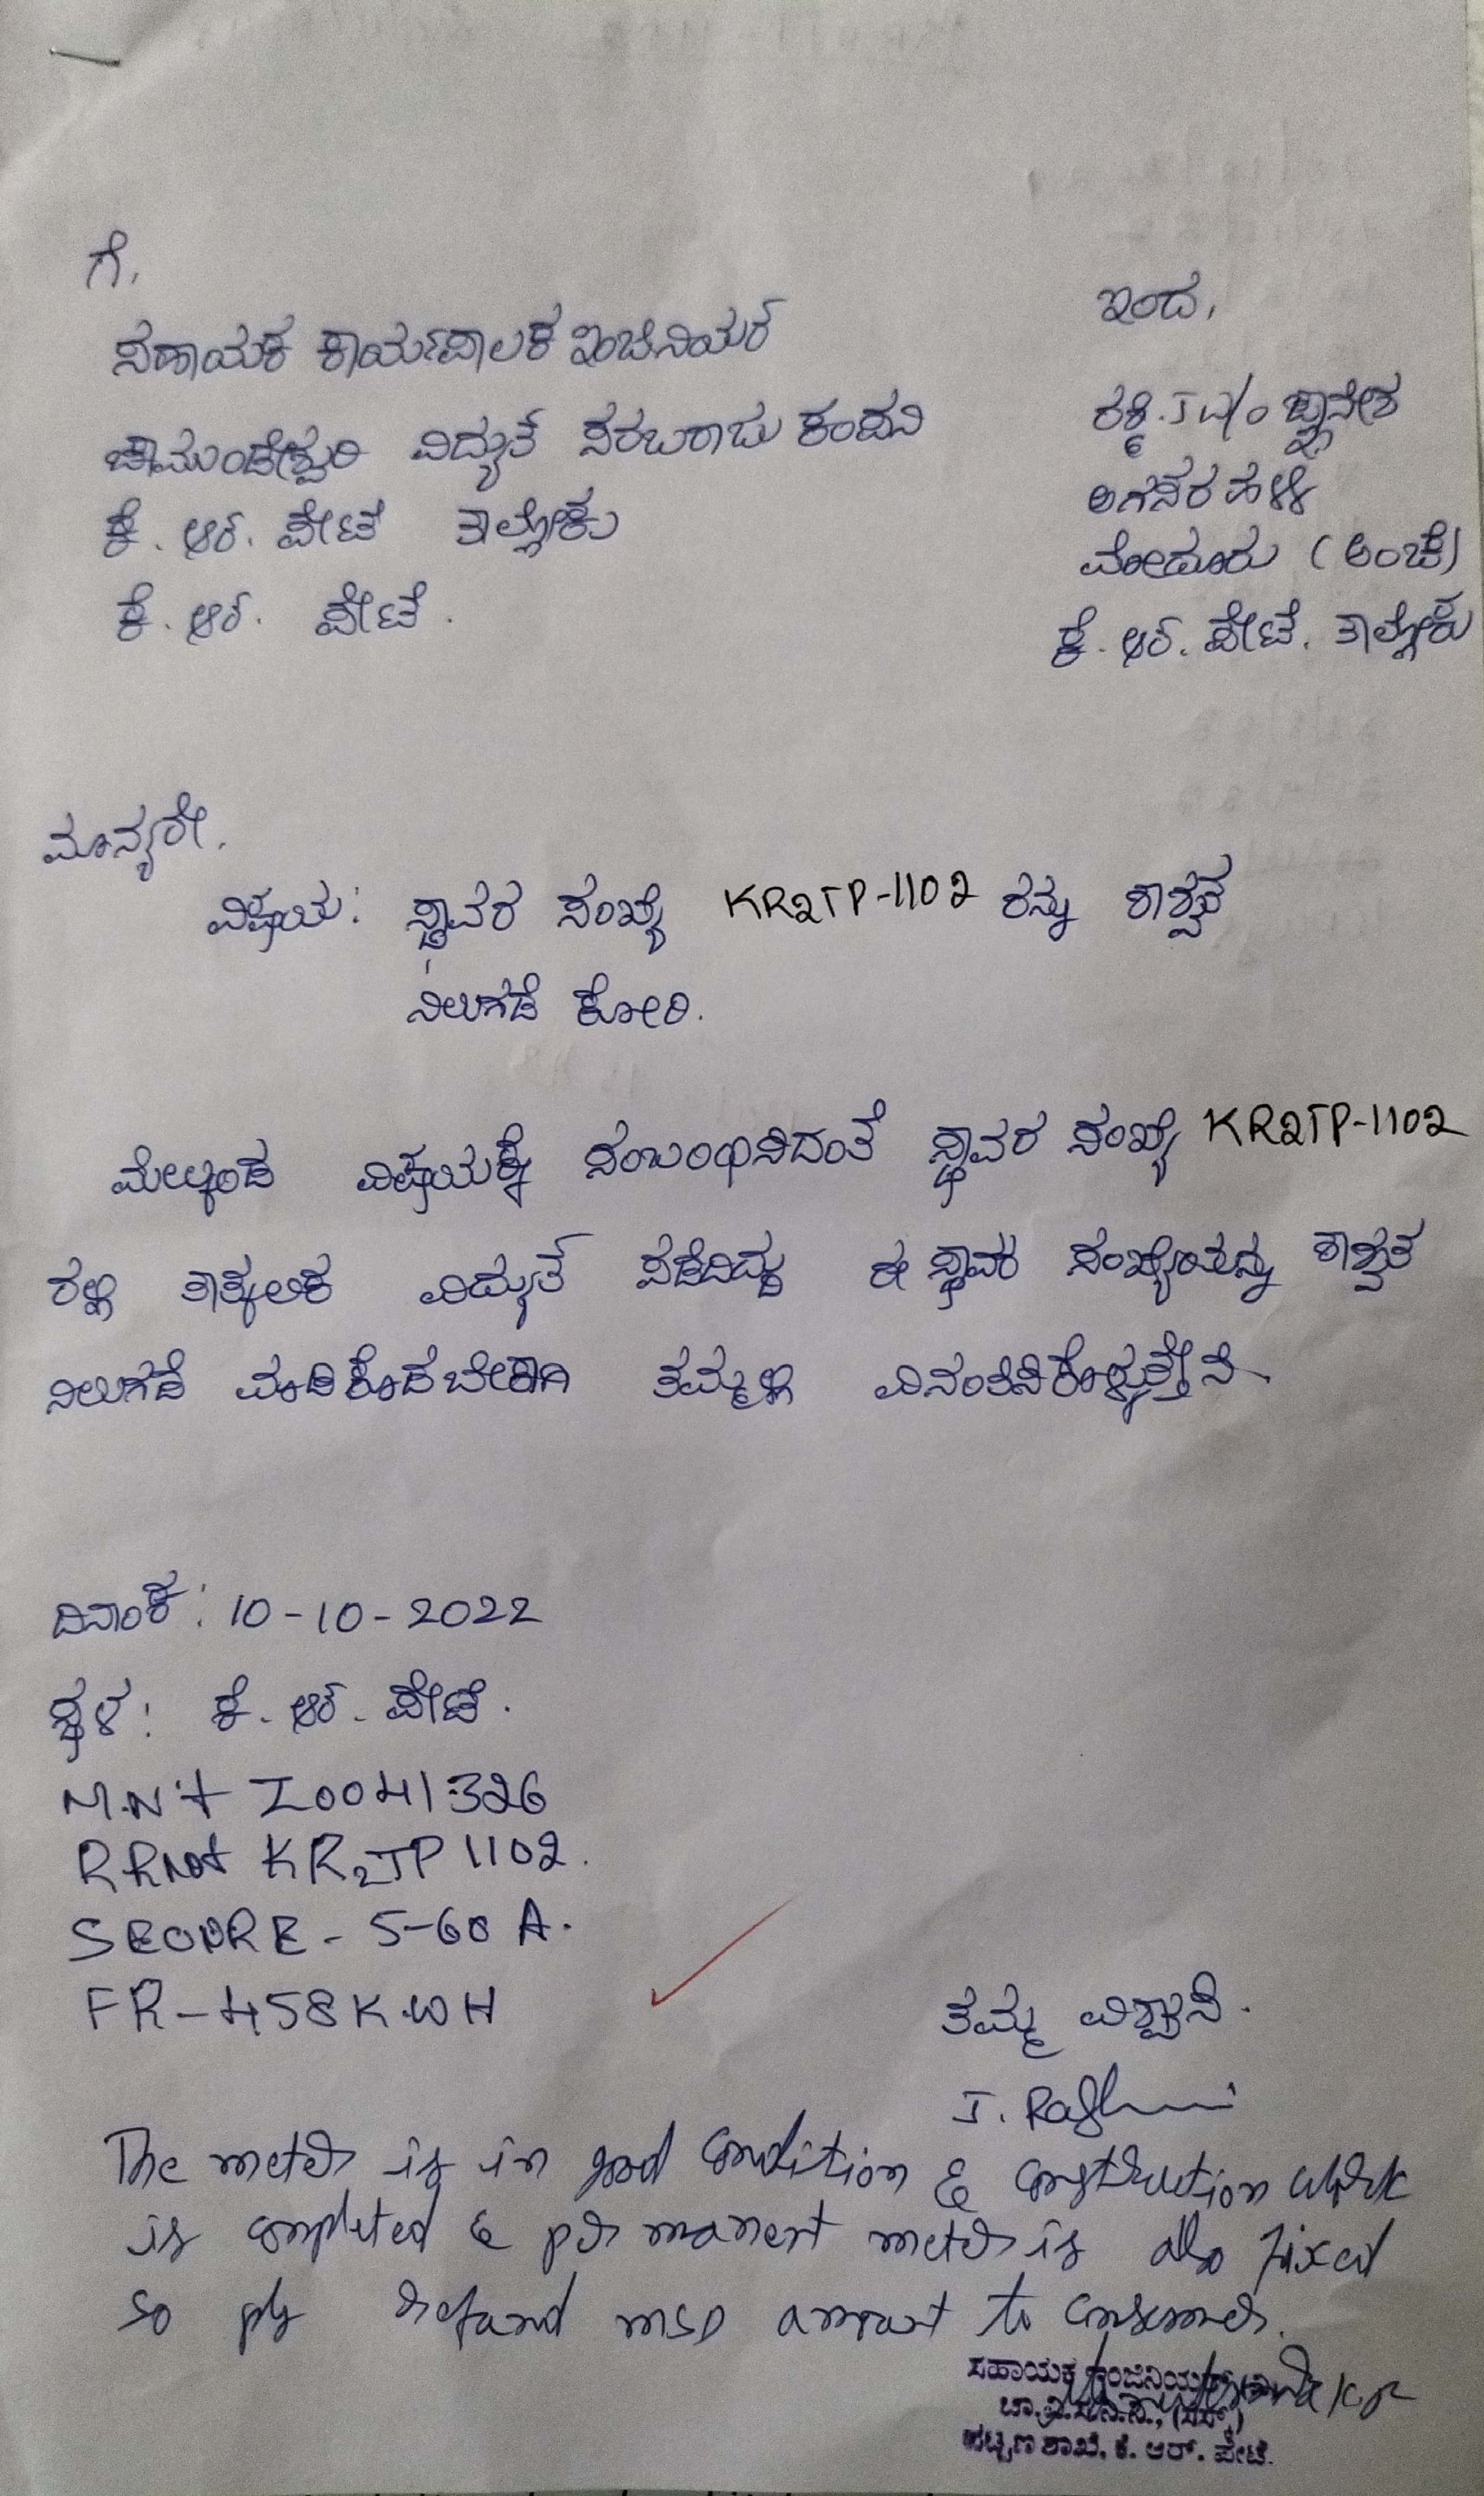 ಗೆ,
ಸಹಾಯಕ ಕಾರ್ಯಪಾಲಕ ಇಂಜಿನಿಯರ್
ಚಾಮುಂಡೇಶ್ವರಿ ವಿದ್ಯುತ್ ಸರಬರಾಜು ಕಂಪನಿ
ಕೆ. ಆರ್. ಪೇಟೆ ತಾಲ್ಲೋಕು
ಕೆ. ಆರ್. ಪೇಟೆ.
ಇಂದ,
J W/o ಜ್ಞಾನೇಶ
ಅಗಸರಹಳ್ಳಿ
ಮೋದೂರು (ಅಂಚೆ)
ಕೆ. ಆರ್. ಪೇಟೆ. ತಾಲ್ಲೋಕು
ಮಾನ್ಯರೇ,
ವಿಷಯ: ಸ್ಥಾವರ ಸಂಖ್ಯೆ KR2TP-1102 ರನ್ನು ಶಾಶ್ವತ
ನಿಲುಗಡೆ ಕೋರಿ.
ಮೇಲ್ಕಂಡ ವಿಷಯಕ್ಕೆ ಸಂಬಂಧಿಸಿದಂತೆ ಸ್ಥಾವರ ಸಂಖ್ಯೆ KR2TP-1102
ರಲ್ಲಿ ತಾತ್ಕಲಿಕ ವಿದ್ಯುತ್ ಪಡೆದಿದ್ದು ಈ ಸ್ಥಾವರ ಸಂಖ್ಯೆಯನ್ನು ಶಾಶ್ವತ
ನಿಲುಗಡೆ ಮಾಡಿಕೊಡಬೇಕಾಗಿ ತಮ್ಮಲ್ಲಿ ವಿನಂತಿಸಿಕೊಳ್ಳುತ್ತೇನೆ
ದಿನಾಂಕ: 10-10-2022
ಸ್ಥಳ: ಕೆ. ಆರ್. ಪೇಟೆ.
I0041326
KR2TP 1102.
SECURE - 5-60 A.
FR - 458 K.WH
ತಮ್ಮ ವಿಶ್ವಾಸಿ.
The meter is in good condition & construction work
is completed & permanent meter is also fixed
so pls refund MSD amount to consumer.
ಸಹಾಯಕ ಇಂಜಿನಿಯರ್ (ವಿ)
ಚಾ.ವಿ.ಸ.ನಿ.ನಿ.,
ಪಟ್ಟಣ ಶಾಖೆ, ಕೆ. ಆರ್. ಪೇಟೆ.